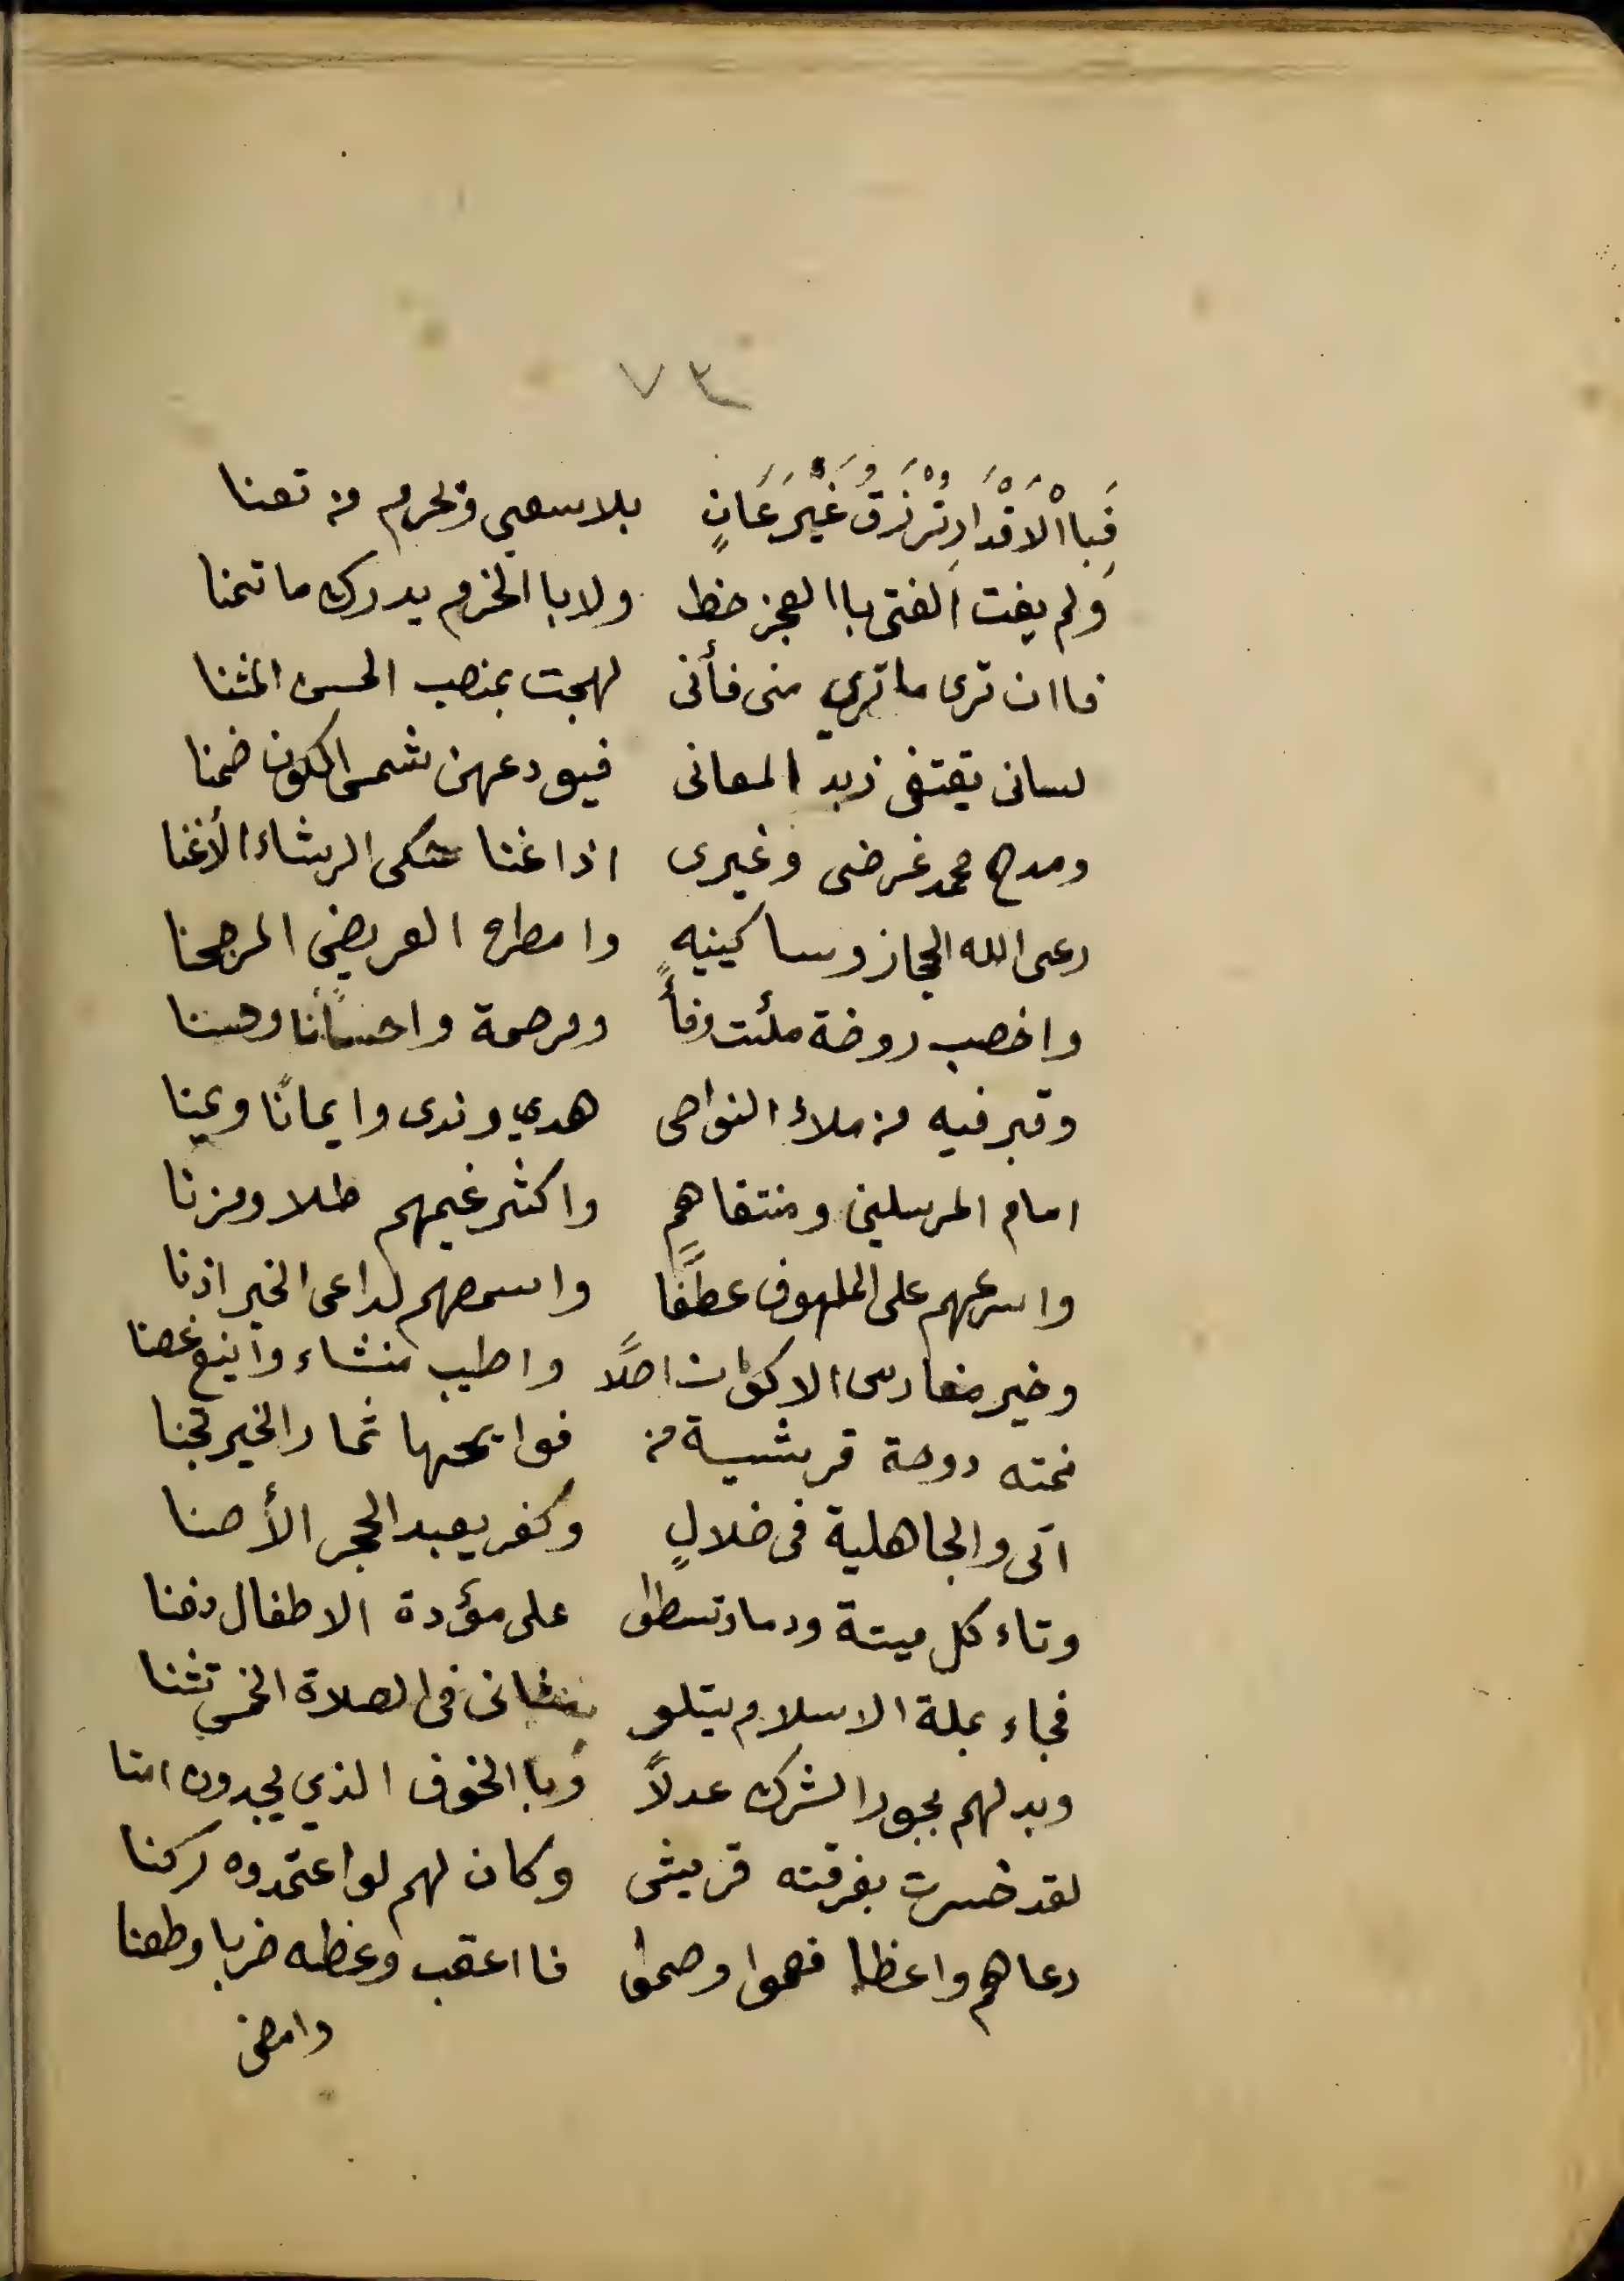 ٧٣
فَبِاالْاَقْدَارِ تُرْزَقُ غَيْرَ عَانٍ بلا سعيي وتحرم من تعنا
ولم يفت الفتى باالعجز حظ ولا باالحزم يدرك ما تمنا
فاان ترى ما تري منى فأنى لهجت بمنصب الحسن المثنا
لسانى يقتفى زبد المعانى فيودعهن شمس الكون ضمنا
ومدح محمد غرضى وغيرى اذا غنا حكى الرشاء الأغنا
رعى الله الحجاز وساكينيهٍ وامطره العريضي المرجحنا
واخصب روضة ملئت وفأً ومرحمة واحسانًا وحسنا
وقبر فيه من ملاء النواحى هدي وندى وايمانًا ويمنا
امام المرسلين ومنتقاهم واكثر غيمهم طلا ومزنا
واسرعهم على الملهوف عطفًا واسمعهم لداعى الخير اذنا
وخير مغارس الاكوان اصلًا واطيب منشاء وأينع غصنا
نمته دوحة قرشية من فوايحها ثمار الخير تجنا
اتى والجاهلية فى ضلالٍ وكفر يعبد الحجر الأصنا
وتاء كل ميتة ودما وتسطوا على مؤدة الاطفال دفنا
فجاء بملة الاسلام يتلو مثانى فى الصلاة الخمس تثنا
وبدلهم بجور الشرك عدلاً وباالخوف الذي يجدون امنا
لقد خسرت بفرقته قريش وكان لهم لو اعتمدوه ركنا
دعاهم واعظا فعموا وصموا فااعقب وعظه ضربا وطعنا
وامضى